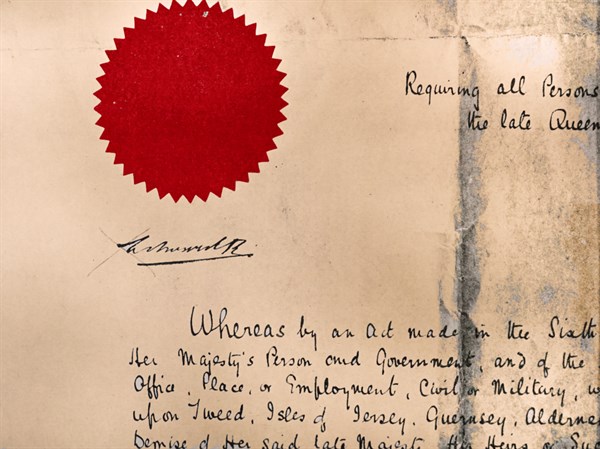 Requiring all Persons
the late Queen
Whereas by an Act made in the Sixth
Her Majesty's Person and Government, and of the
Office, Place, or Employment, Civil or Military,
upon Tweed, Isles of Jersey, Guernsey,
Demise of Her said late Majesty Her Heirs or